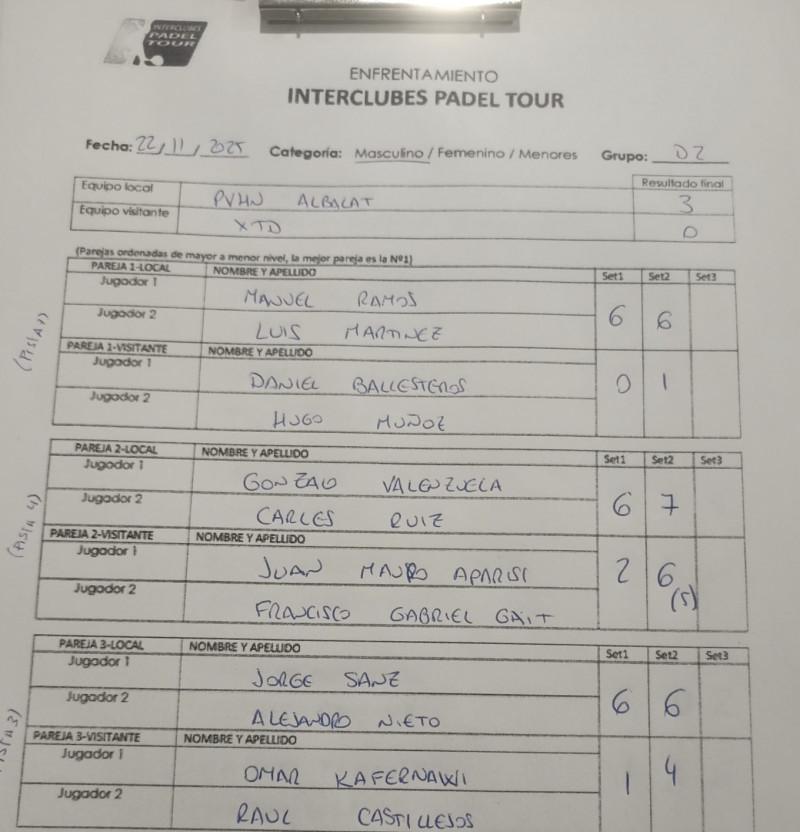 INTERCLUBES
PADEL
TOUR
ENFRENTAMIENTO
INTERCLUBES PADEL TOUR
Fecha: 22/11/2025 Categoría: Masculino / Femenino / Menores Grupo: D2
Equipo local PVHN ALBALAT Resultado final 3
Equipo visitante XTD 0
(Parejas ordenadas de mayor a menor nivel, la mejor pareja es la Nº1)
(PISTA 1)
PAREJA 1-LOCAL NOMBRE Y APELLIDO Set1 Set2 Set3
Jugador 1 MANUEL RAMOS 6 6
Jugador 2 LUIS MARTINEZ
PAREJA 1-VISITANTE NOMBRE Y APELLIDO
Jugador 1 DANIEL BALLESTEROS 0 1
Jugador 2 HUGO MUÑOZ
(PISTA 4)
PAREJA 2-LOCAL NOMBRE Y APELLIDO Set1 Set2 Set3
Jugador 1 GONZALO VALENZUELA 6 7
Jugador 2 CARLES RUIZ
PAREJA 2-VISITANTE NOMBRE Y APELLIDO
Jugador 1 JUAN MAURO APARISI 2 6 (5)
Jugador 2 FRANCISCO GABRIEL GAIT
(PISTA 3)
PAREJA 3-LOCAL NOMBRE Y APELLIDO Set1 Set2 Set3
Jugador 1 JORGE SANZ 6 6
Jugador 2 ALEJANDRO NIETO
PAREJA 3-VISITANTE NOMBRE Y APELLIDO
Jugador 1 OMAR KAFERNAWI 1 4
Jugador 2 RAUL CASTILLEJOS